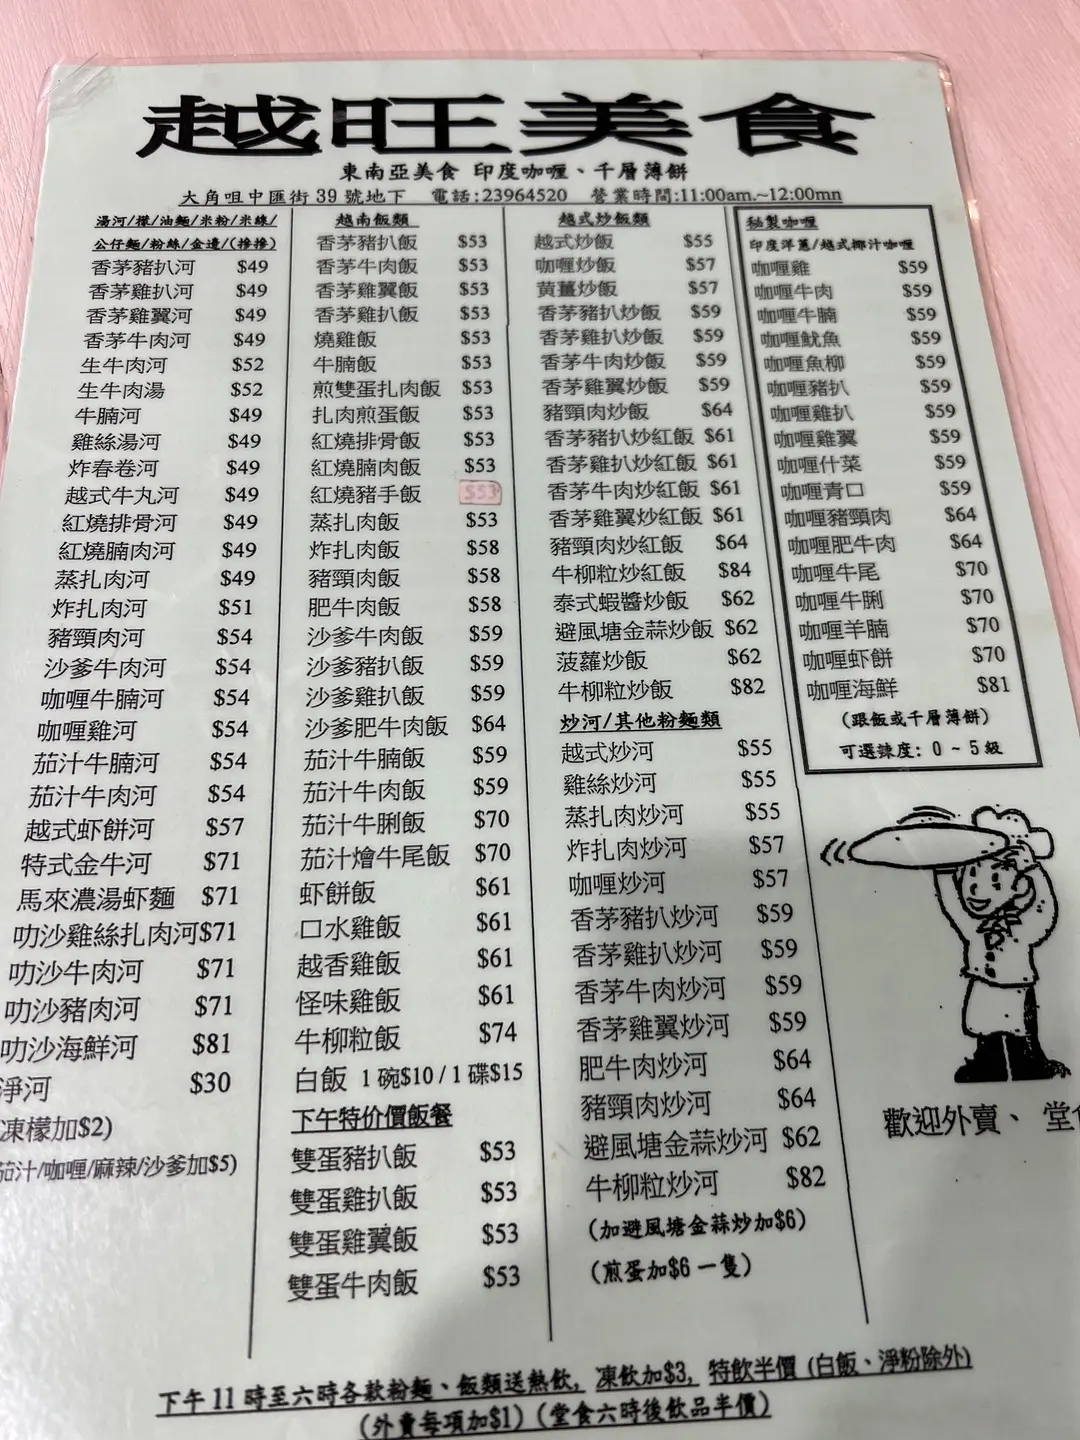 越旺美食
東南亞美食 印度咖喱、千層薄餅
大角咀中匯街 39 號地下 電話:23964520 營業時間:11:00am.~12:00mn
湯河/檬/油麵/米粉/米線/
公仔麵/粉絲/金邊/(摻摻)
香茅豬扒河 $49
香茅雞扒河 $49
香茅雞翼河 $49
香茅牛肉河 $49
生牛肉河 $52
生牛肉湯 $52
牛腩河 $49
雞絲湯河 $49
炸春卷河 $49
越式牛丸河 $49
紅燒排骨河 $49
紅燒腩肉河 $49
蒸扎肉河 $49
炸扎肉河 $51
豬頸肉河 $54
沙爹牛肉河 $54
咖喱牛腩河 $54
咖喱雞河 $54
茄汁牛腩河 $54
茄汁牛肉河 $54
越式虾餅河 $57
特式金牛河 $71
馬來濃湯虾麵 $71
叻沙雞絲扎肉河$71
叻沙牛肉河 $71
叻沙豬肉河 $71
叻沙海鮮河 $81
淨河 $30
凍檬加$2)
茄汁/咖喱/麻辣/沙爹加$5)
越南飯類
香茅豬扒飯 $53
香茅牛肉飯 $53
香茅雞翼飯 $53
香茅雞扒飯 $53
燒雞飯 $53
牛腩飯 $53
煎雙蛋扎肉飯 $53
扎肉煎蛋飯 $53
紅燒排骨飯 $53
紅燒腩肉飯 $53
紅燒豬手飯 $53
蒸扎肉飯 $53
炸扎肉飯 $58
豬頸肉飯 $58
肥牛肉飯 $58
沙爹牛肉飯 $59
沙爹豬扒飯 $59
沙爹雞扒飯 $59
沙爹肥牛肉飯 $64
茄汁牛腩飯 $59
茄汁牛肉飯 $59
茄汁牛脷飯 $70
茄汁燴牛尾飯 $70
虾餅飯 $61
口水雞飯 $61
越香雞飯 $61
怪味雞飯 $61
牛柳粒飯 $74
白飯 1 碗$10 / 1 碟$15
下午特价價飯餐
雙蛋豬扒飯 $53
雙蛋雞扒飯 $53
雙蛋雞翼飯 $53
雙蛋牛肉飯 $53
越式炒飯類
越式炒飯 $55
咖喱炒飯 $57
黄薑炒飯 $57
香茅豬扒炒飯 $59
香茅雞扒炒飯 $59
香茅牛肉炒飯 $59
香茅雞翼炒飯 $59
豬頸肉炒飯 $64
香茅豬扒炒紅飯 $61
香茅雞扒炒紅飯 $61
香茅牛肉炒紅飯 $61
香茅雞翼炒紅飯 $61
豬頸肉炒紅飯 $64
牛柳粒炒紅飯 $84
泰式蝦醬炒飯 $62
避風塘金蒜炒飯 $62
菠蘿炒飯 $62
牛柳粒炒飯 $82
炒河/其他粉麵類
越式炒河 $55
雞絲炒河 $55
蒸扎肉炒河 $55
炸扎肉炒河 $57
咖喱炒河 $57
香茅豬扒炒河 $59
香茅雞扒炒河 $59
香茅牛肉炒河 $59
香茅雞翼炒河 $59
肥牛肉炒河 $64
豬頸肉炒河 $64
避風塘金蒜炒河 $62
牛柳粒炒河 $82
(加避風塘金蒜炒加$6)
(煎蛋加$6 一隻)
秘製咖喱
印度洋蔥/越式椰汁咖喱
咖喱雞 $59
咖喱牛肉 $59
咖喱牛腩 $59
咖喱魷魚 $59
咖喱魚柳 $59
咖喱豬扒 $59
咖喱雞扒 $59
咖喱雞翼 $59
咖喱什菜 $59
咖喱青口 $59
咖喱豬頸肉 $64
咖喱肥牛肉 $64
咖喱牛尾 $70
咖喱牛脷 $70
咖喱羊腩 $70
咖喱虾餅 $70
咖喱海鮮 $81
(跟飯或千層薄餅)
可選辣度: 0 ~ 5 級
歡迎外賣、 堂食
下午 11 時至六時各款粉麵、飯類送熱飲, 凍飲加$3, 特飲半價 (白飯、淨粉除外)
(外賣每項加$1) (堂食六時後飲品半價)